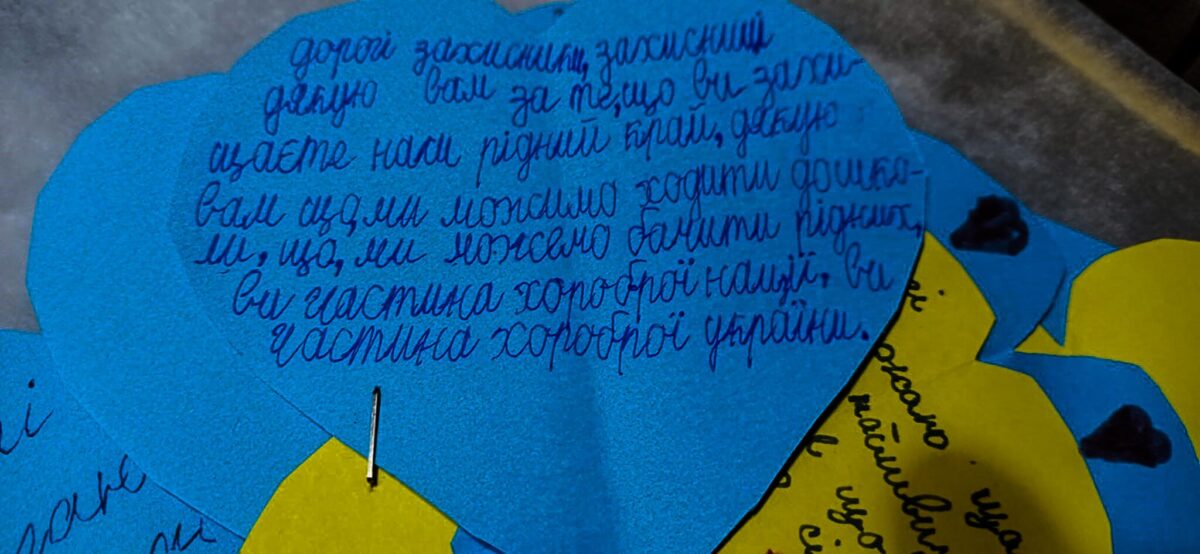 дорогі захисники, захисниці
дякую вам за те, що ви захи-
щаєте наш рідний край, дякую
вам що ми можимо ходити дошко-
ли, що, ми можемо бачити рідних,
ви частина хороброї нації, ви
частина хороброї україни.